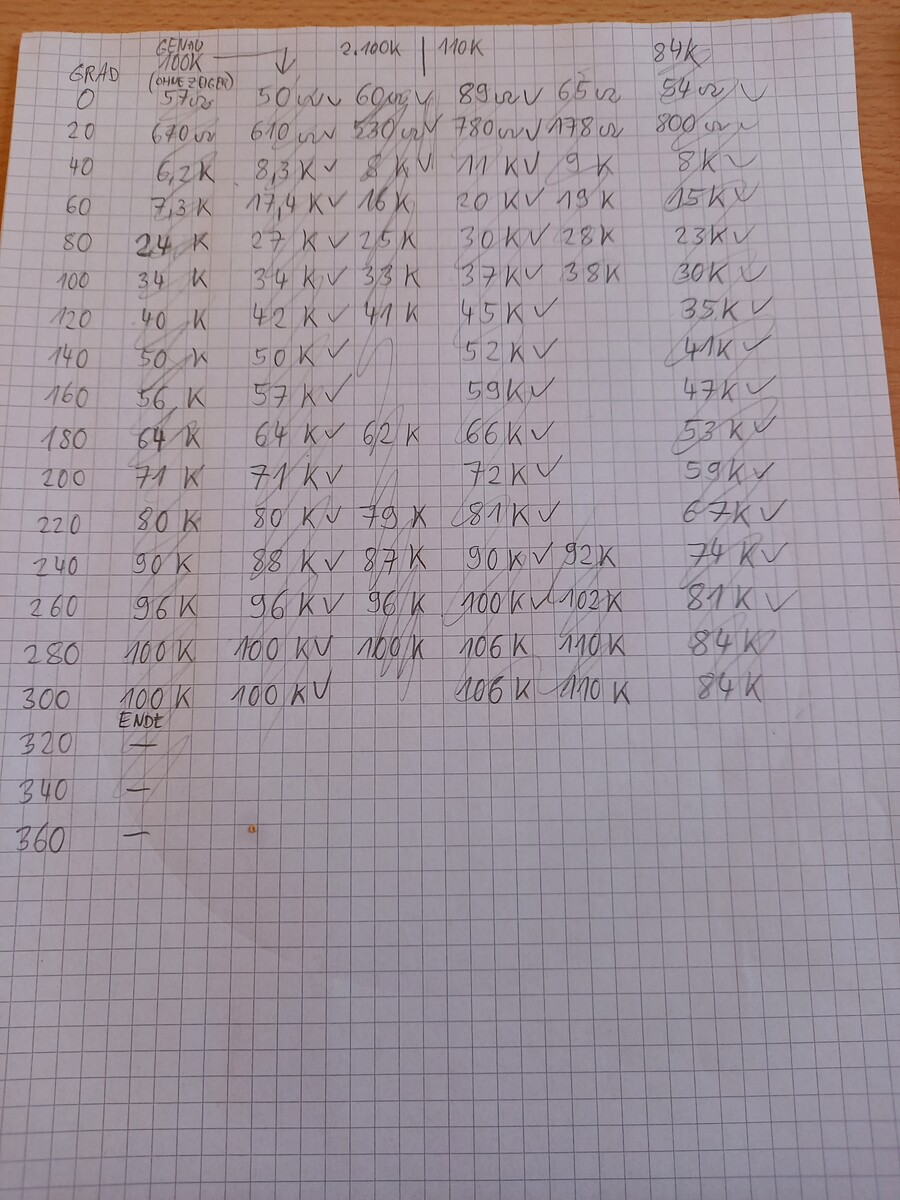 GENAU 2.100K | 110K 84K
GRAD 100K
(OHNE ZEIGER)
0 57Ω 50Ω✓ 60Ω✓ 89Ω✓ 65Ω 54Ω✓
20 670Ω 610Ω✓ 530Ω✓ 780Ω✓ 178Ω 800Ω✓
40 6,2K 8,3K✓ 8K✓ 11K✓ 9K 8K✓
60 7,3K 17,4K✓ 16K 20K✓ 19K 15K✓
80 24K 27K✓ 25K 30K✓ 28K 23K✓
100 34K 34K✓ 33K 37K✓ 38K 30K✓
120 40K 42K✓ 41K 45K✓ 35K✓
140 50K 50K✓ 52K✓ 41K✓
160 56K 57K✓ 59K✓ 47K✓
180 64K 64K✓ 62K 66K✓ 53K✓
200 71K 71K✓ 72K✓ 59K✓
220 80K 80K✓ 79K 81K✓ 67K✓
240 90K 88K✓ 87K 90K✓ 92K 74K✓
260 96K 96K✓ 96K 100K✓ 102K 81K✓
280 100K 100K✓ 100K 106K 110K 84K
300 100K 100K✓ 106K 110K 84K
ENDE
320 —
340 —
360 —